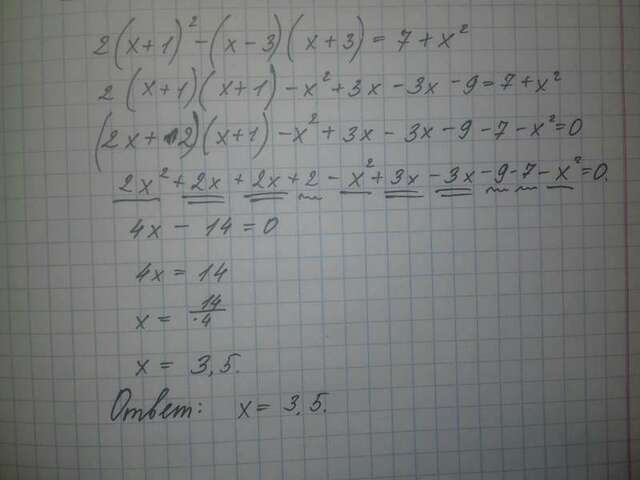 2(x+1)² - (x-3)(x+3) = 7+x²
2(x+1)(x+1) - x²+3x-3x-9=7+x²
(2x+2)(x+1) - x²+3x-3x-9-7-x²=0
2x²+2x+2x+2-x²+3x-3x-9-7-x²=0.
4x-14=0
4x=14
x= 14/4
x= 3,5.
Ответ: x= 3,5.